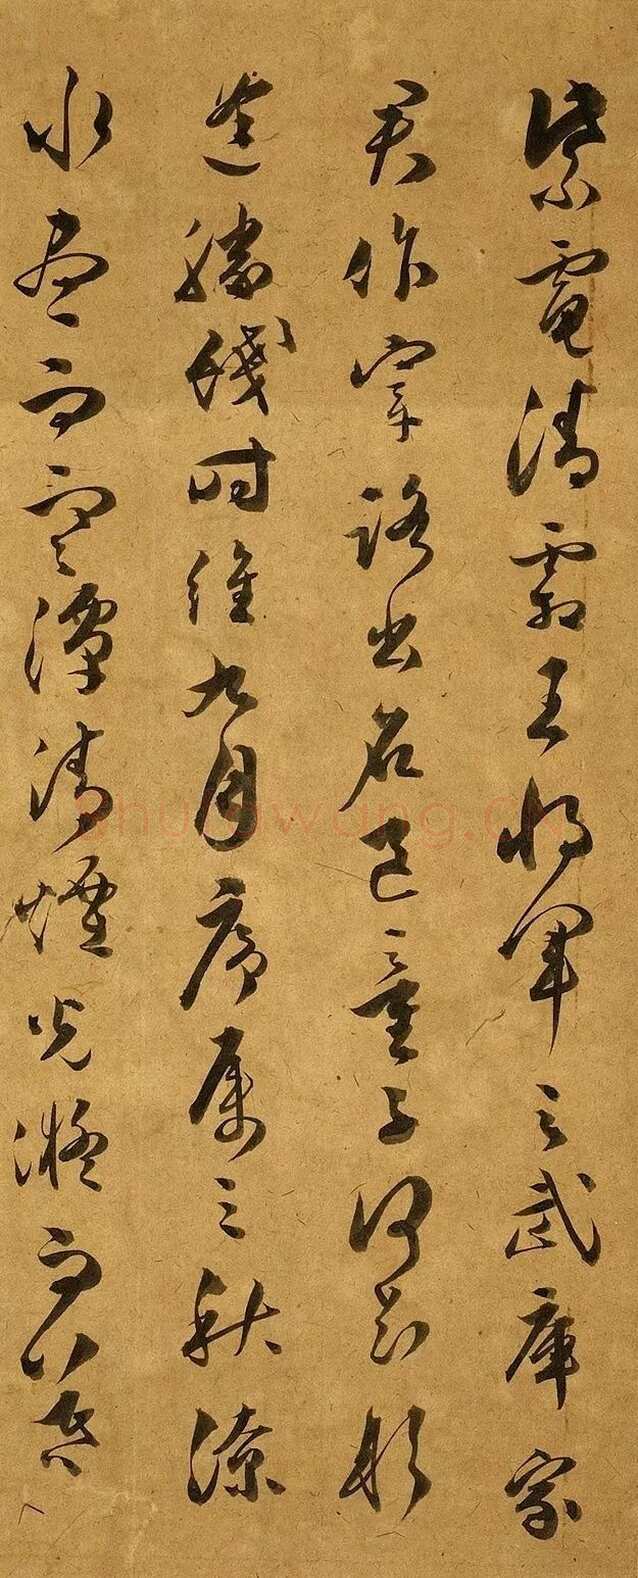 紫電清霜王將軍之武庫家
君作宰路出名區童子何知躬
逢勝餞時維九月序屬三秋潦
水盡而寒潭清煙光凝而暮
shufawang.CN